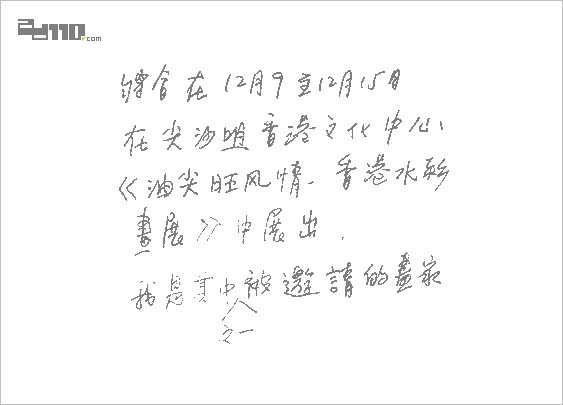 会在12月9至12月15日
在尖沙咀香港文化中心、
《油尖旺风情-香港水彩
畫展》中展出.
我是其中被邀請的畫家
之一